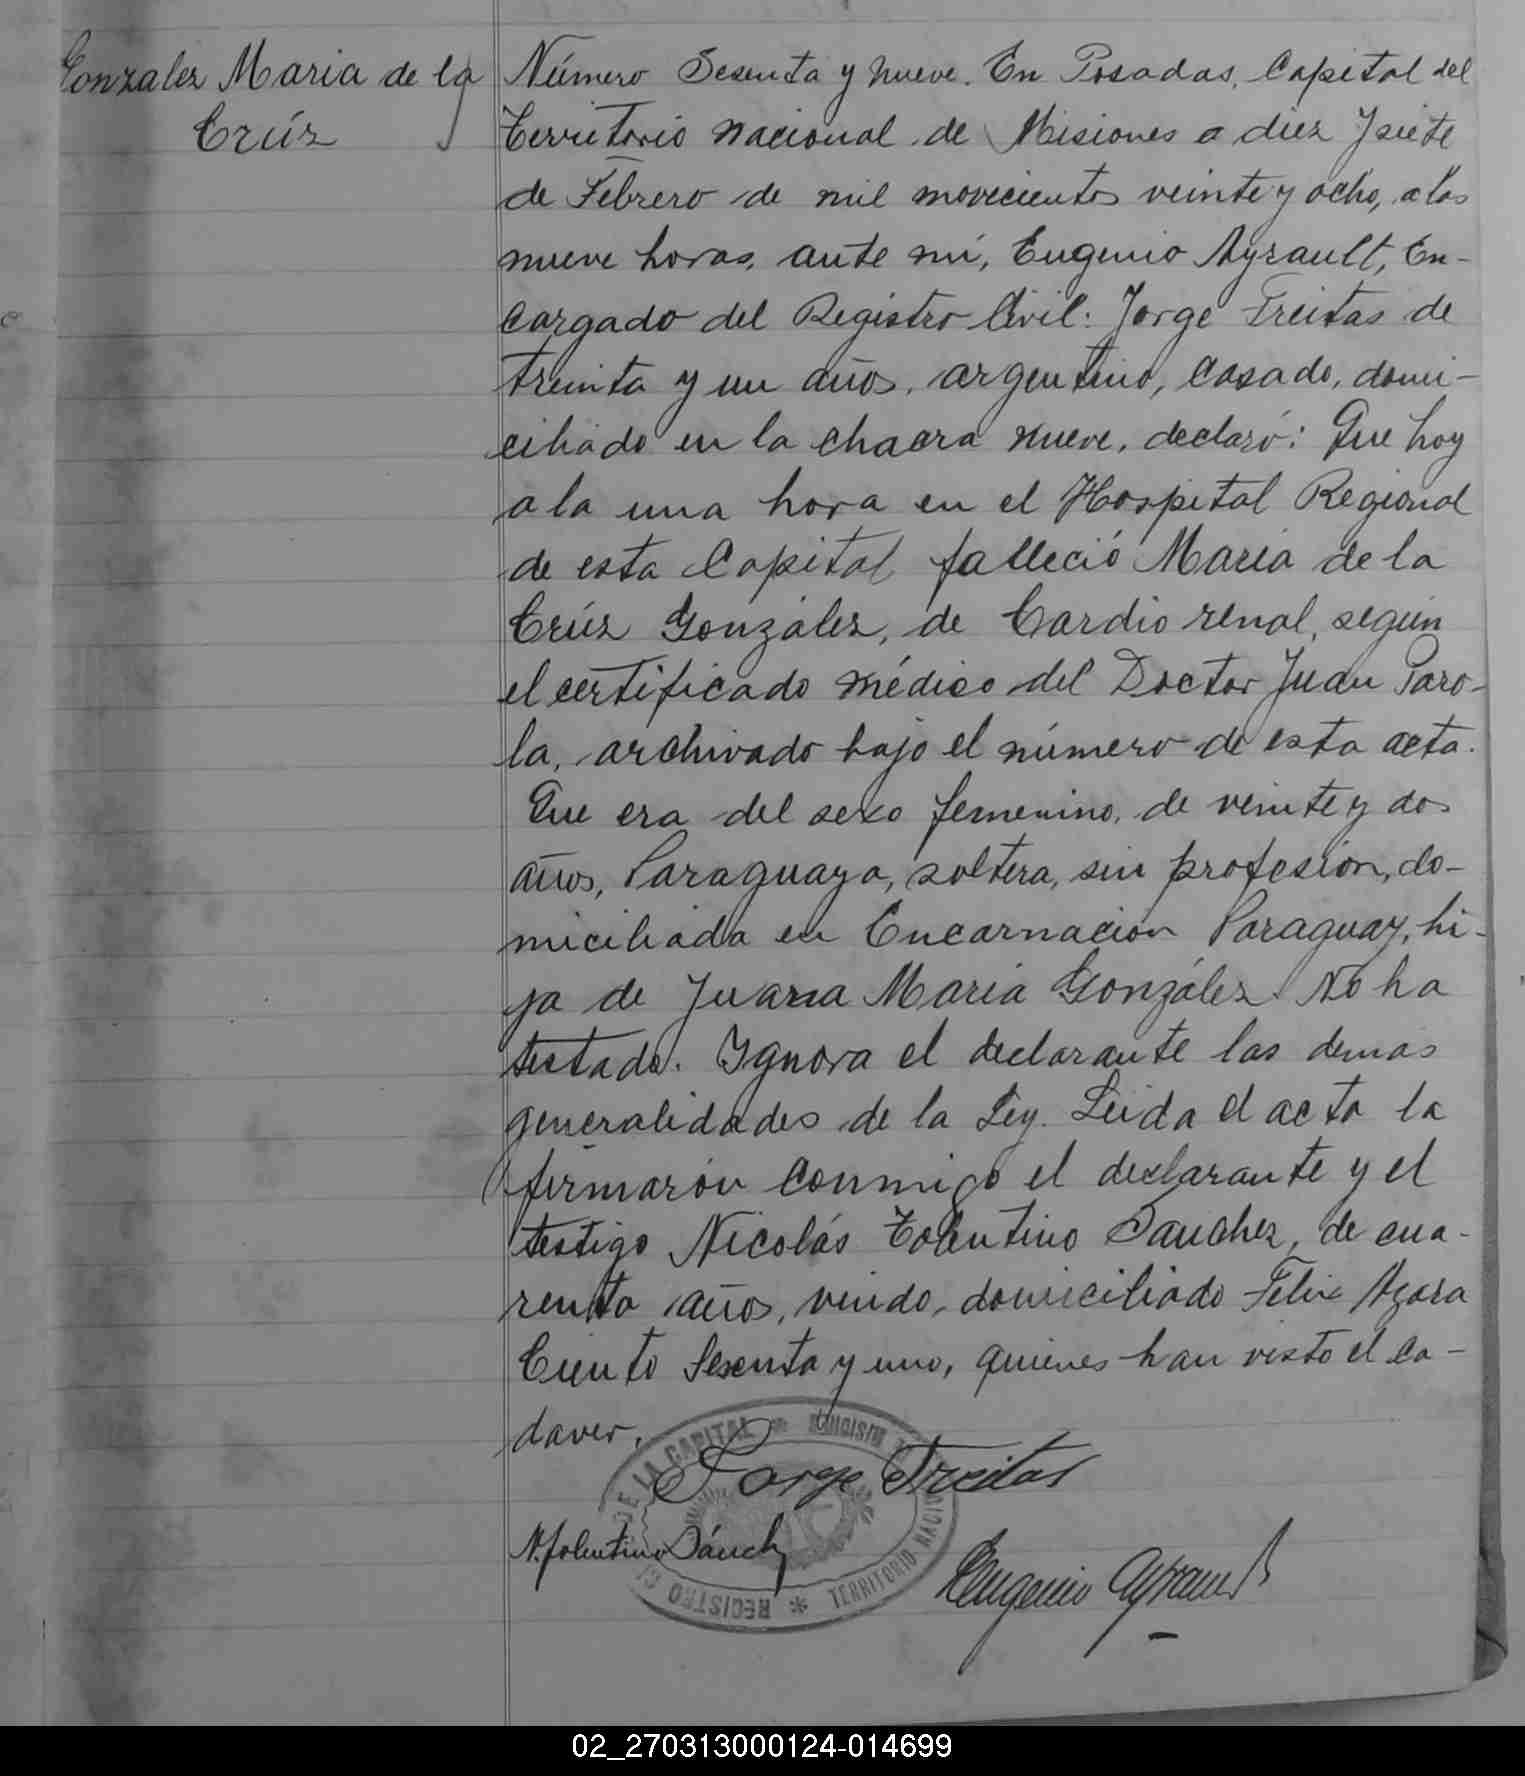 Gonzalez Maria de la
Crúz
Número Sesenta y nueve. En Posadas, Capital del
Territorio Nacional de Misiones a diez y siete
de Febrero de mil novecientos veinte y ocho, a las
nueve horas, ante mí, Eugenio Ayrault, En-
cargado del Registro Civil: Jorge Freitas de
treinta y un años, argentino, casado, domi-
ciliado en la chacra nueve, declaró: Que hoy
a la una hora en el Hospital Regional
de esta Capital falleció Maria de la
Crúz González, de Cardio renal, según
el certificado médico del Doctor Juan Paro-
la, archivado bajo el número de esta acta.
Que era del sexo femenino, de veinte y dos
años, Paraguaya, soltera, sin profesión, do-
miciliada en Encarnación Paraguay, hi-
ja de Juana Maria González. No ha
testado. Ignora el declarante las demás
generalidades de la Ley. Leida el acta la
firmarón conmigo el declarante y el
testigo Nicolás Tolentino Sanchez, de cua-
renta años, viudo, domiciliado Felix Azara
Ciento Sesenta y uno, quienes han visto el ca-
daver.
Jorge Freitas
N. Tolentino Sánchez
Eugenio Ayrault
DE LA CAPITAL
TERRITORIO NACIO
REGISTRO CI
02_270313000124-014699